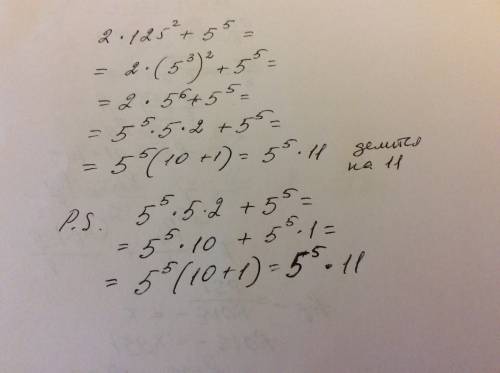 2 · 125² + 5⁵ =
= 2 · (5³)² + 5⁵ =
= 2 · 5⁶ + 5⁵ =
= 5⁵ · 5 · 2 + 5⁵ =
= 5⁵ (10 + 1) = 5⁵ · 11 делится на 11
P.S. 5⁵ · 5 · 2 + 5⁵ =
= 5⁵ · 10 + 5⁵ · 1 =
= 5⁵ (10 + 1) = 5⁵ · 11